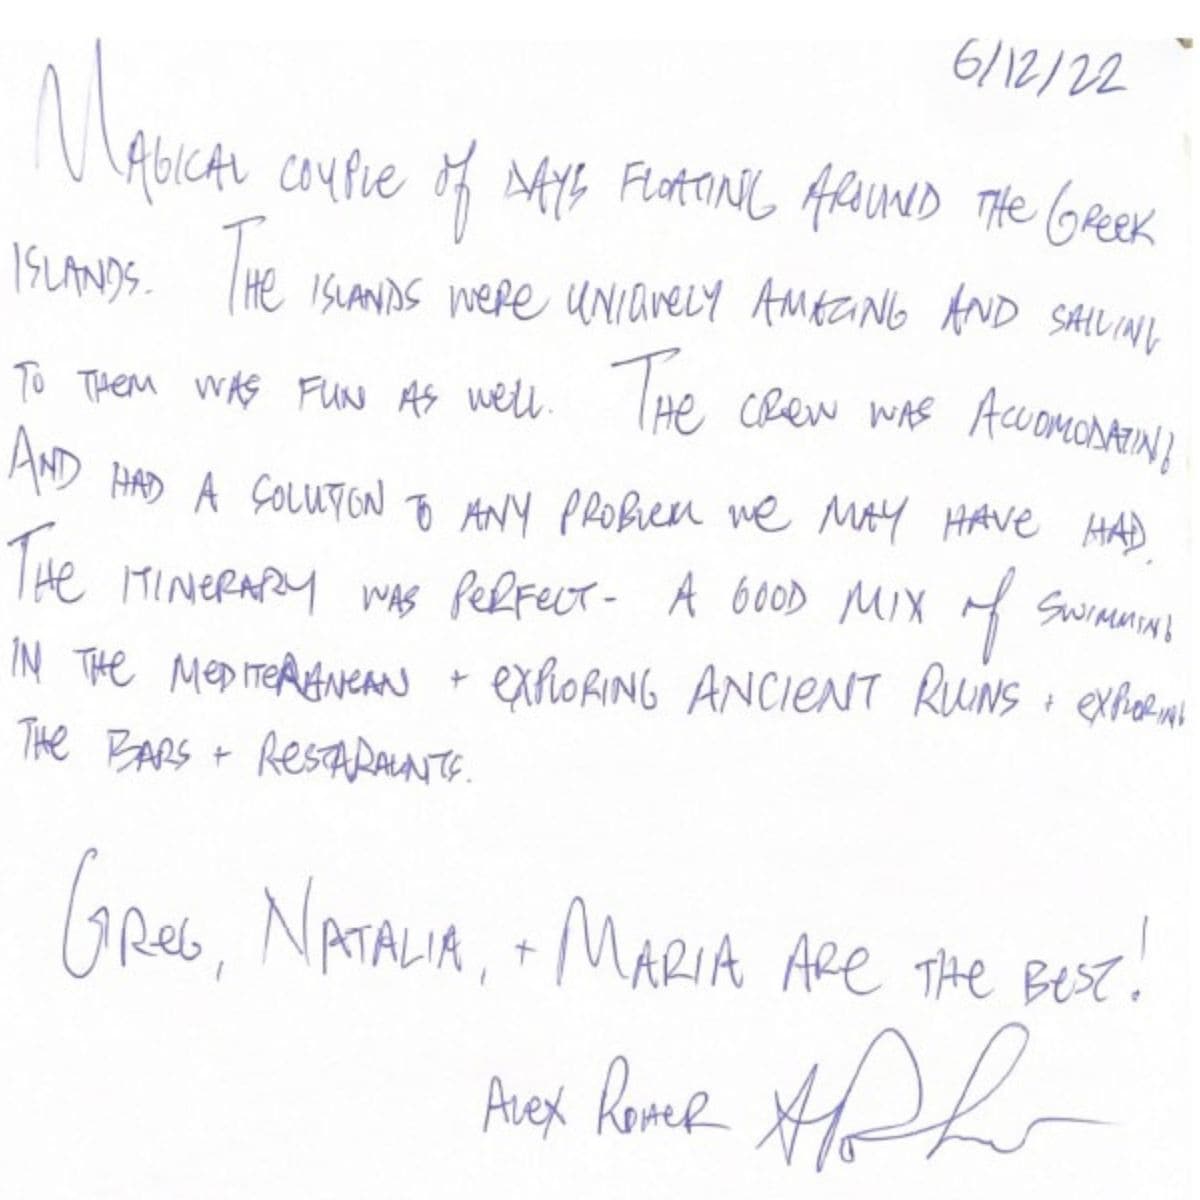 6/12/22
MAGICAL COUPLE Of DAYS FLOATING AROUND THE GREEK
ISLANDS. THE ISLANDS WERE UNIQUELY AMAZING AND SAILING
TO THEM WAS FUN AS WELL. THE CREW WAS ACCOMODATING
AND HAD A SOLUTION TO ANY PROBLEM WE MAY HAVE HAD.
THE ITINERARY WAS PERFECT - A GOOD MIX of SWIMMING
IN THE MEDITERANEAN + EXPLORING ANCIENT RUINS + EXPLORING
THE BARS + RESTARAUNTS.
GREG, NATALIA, + MARIA ARE THE BEST!
ALEX ROHER